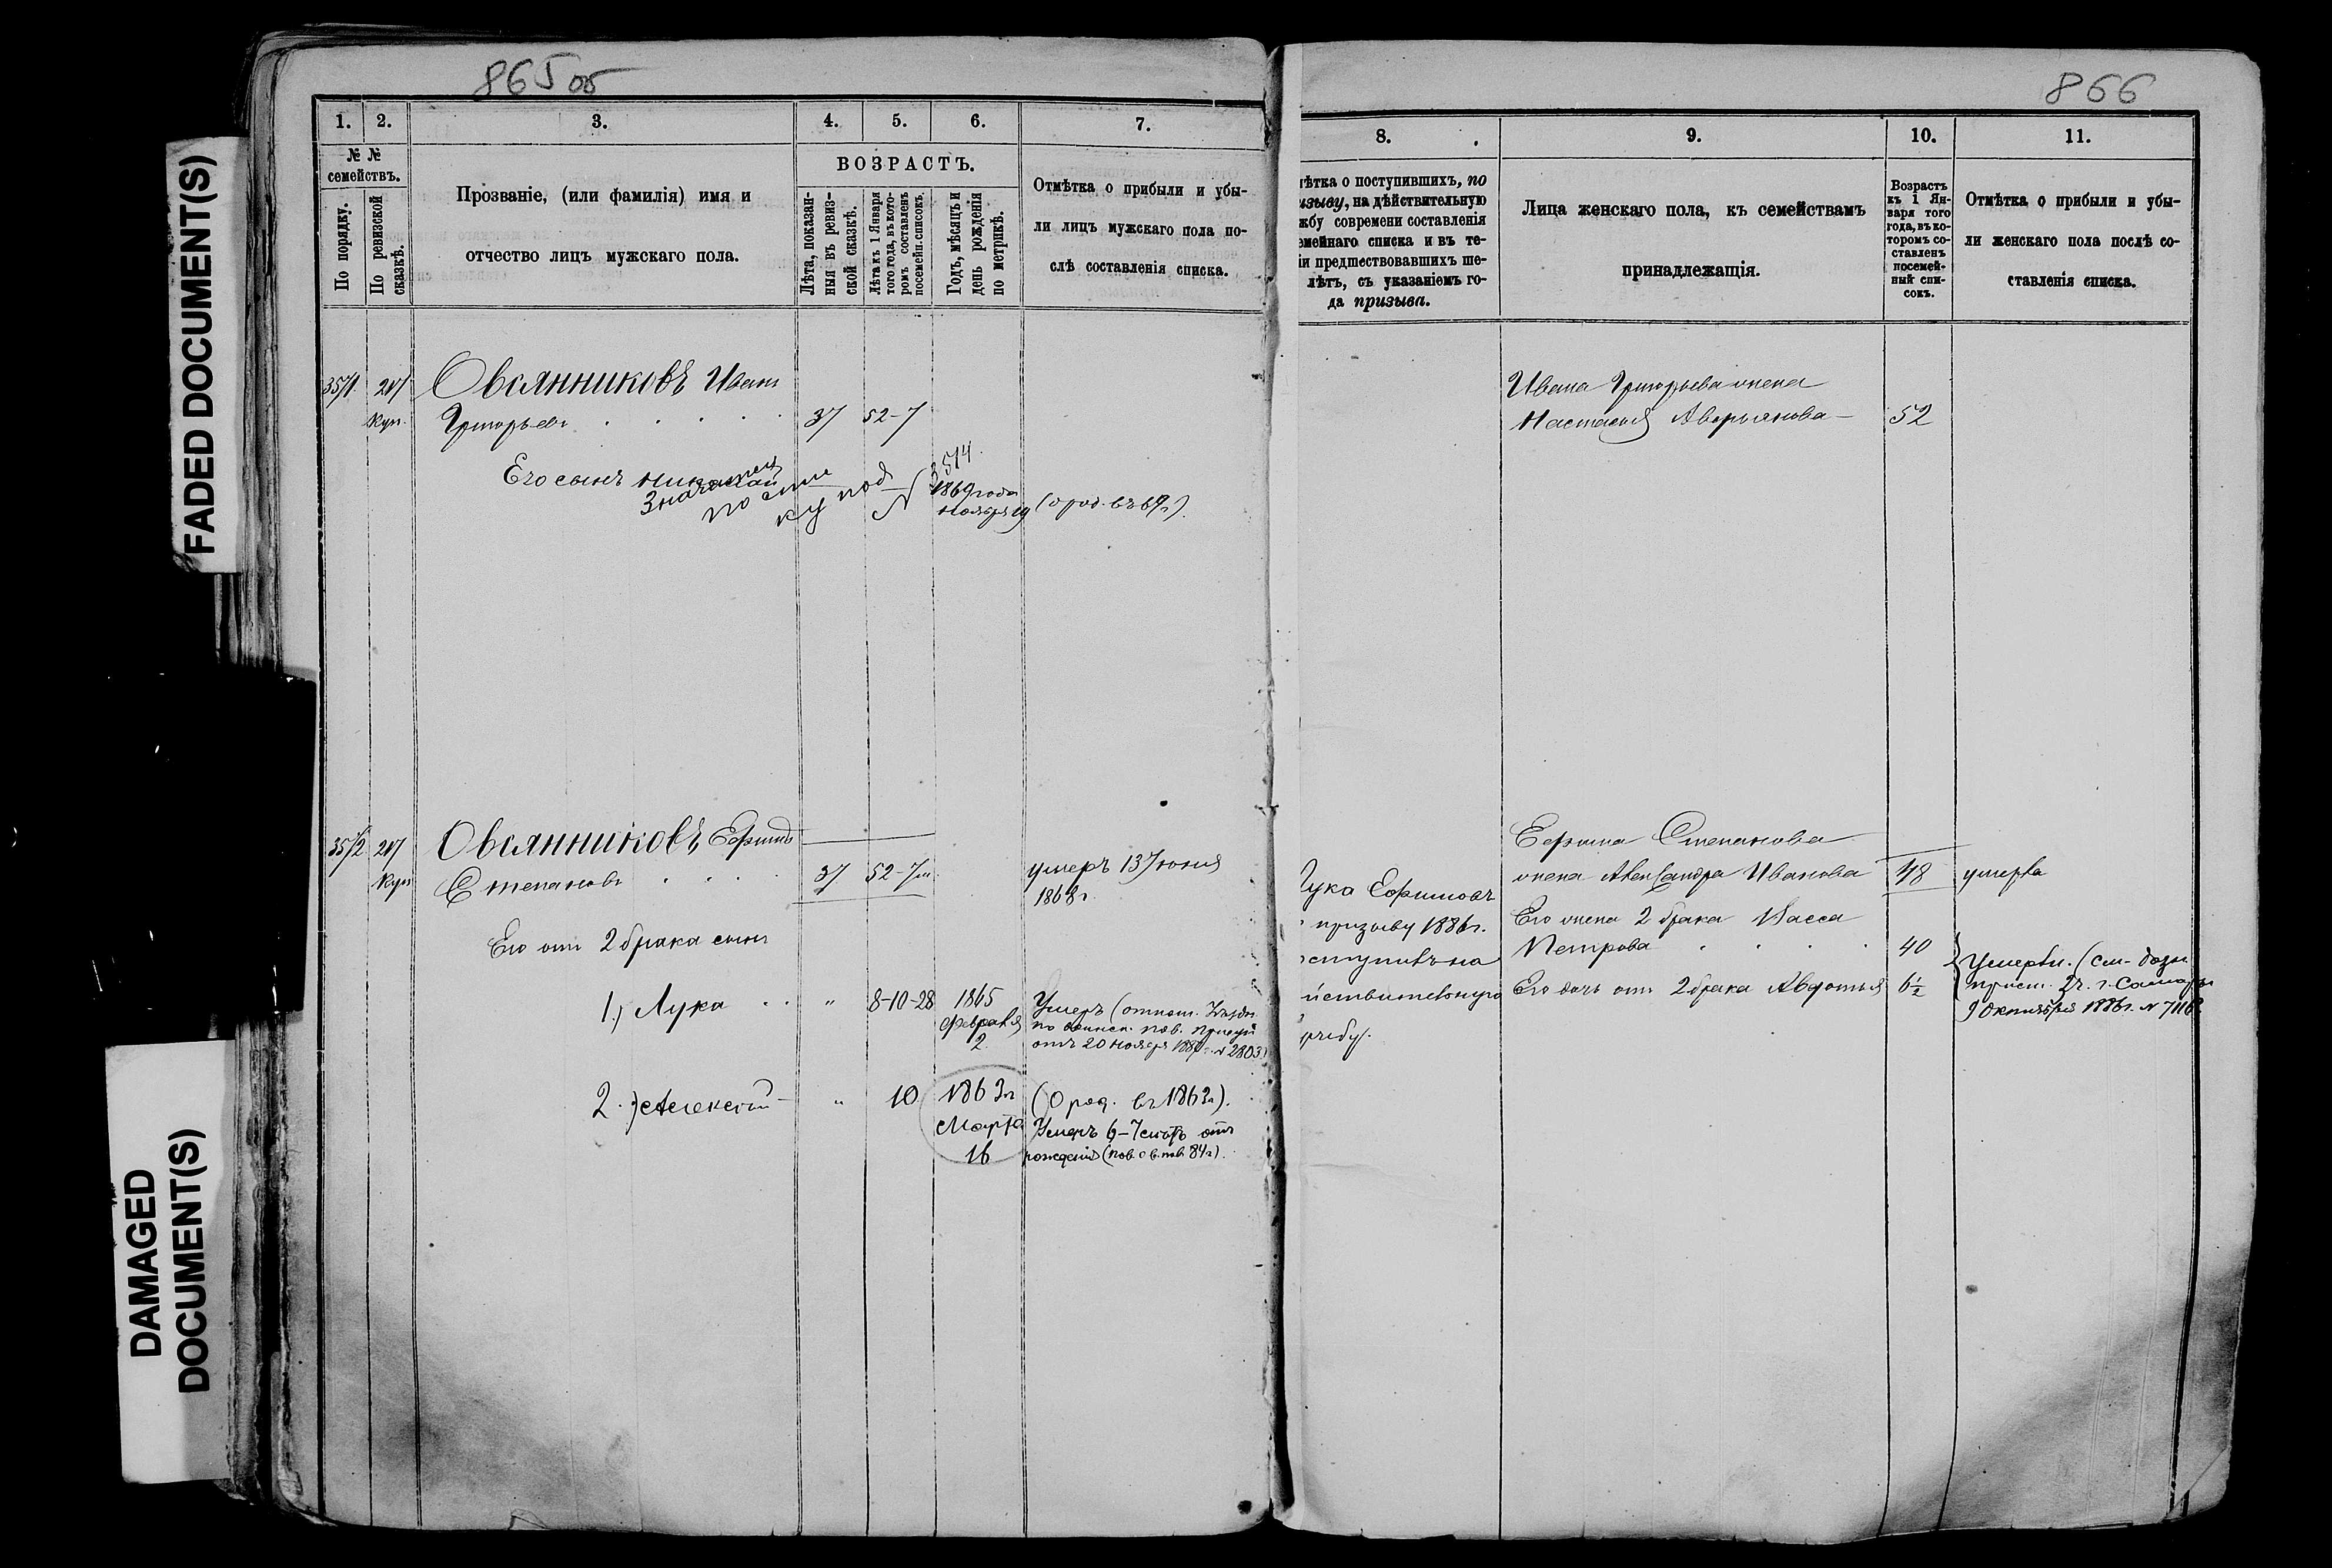 FADED DOCUMENT(S)
DAMAGED
DOCUMENT(S)
865 об
1. 2. 3. 4. 5. 6. 7.
№ №
семействъ.
По порядку.
По ревизской
сказкѣ.
Прозваніе, (или фамилія) имя и
отчество лицъ мужскаго пола.
ВОЗРАСТЪ.
Лѣта, показан-
ныя въ ревиз-
ской сказкѣ.
Лѣта къ 1 Января
того года, въ кото-
ромъ составленъ
посемейн. списокъ.
Годъ, мѣсяцъ и
день рожденія
по метрикѣ.
Отмѣтка о прибыли и убы-
ли лицъ мужскаго пола по-
слѣ составленія списка.
Овсянниковъ Иванъ
куп. Григорьевъ 37 52-7
Его сынъ Николай
Значится
по спис
ку под № 3514.
1869 года
ноября 29 (о род. въ 69г).
Овсянниковъ Ефимъ
куп Степановъ 37 52-7м.
умеръ 13 Іюня
1868г.
Его отъ 2 брака сынъ
1.) Лука " 8-10-28 1865
Февраля
2
Умеръ (отнош. Уѣздн.
по воинск. пов. присут
отъ 20 ноября 188 г. № 2803)
2.) Алексѣй " 10 1863г
Марта
16
(О род. въ 1863г).
Умеръ 6-7 лѣтъ отъ
рожденія (пов. о в. пов. 84г).
866
8. 9. 10. 11.
ѣтка о поступившихъ, по
изыву, на дѣйствительную
жбу современи составленія
емейнаго списка и въ те-
іи предшествовавшихъ ше-
лѣтъ, съ указаніемъ го-
да призыва.
Лица женскаго пола, къ семействамъ
принадлежащія.
Возрастъ
къ 1 Ян-
варя того
года, въ ко-
торомъ со-
ставленъ
посемей-
ный спи-
сокъ.
Отмѣтка о прибыли и убы-
ли женскаго пола послѣ со-
ставленія списка.
Ивана Григорьева жена
Настасья Аверьянова 52
Лука Ефимовъ
призыву 1886г.
оступилъ на
йствительную
ужбу.
Ефима Степанова
жена Александра Иванова 48 умерла
Его жена 2 брака Васса
Петрова 40
Его дочь отъ 2 брака Авдотья 6½
Умерли. (см. дозн.
прист. 2ч. г. Самары
9 Октября 1886г. № 7116)